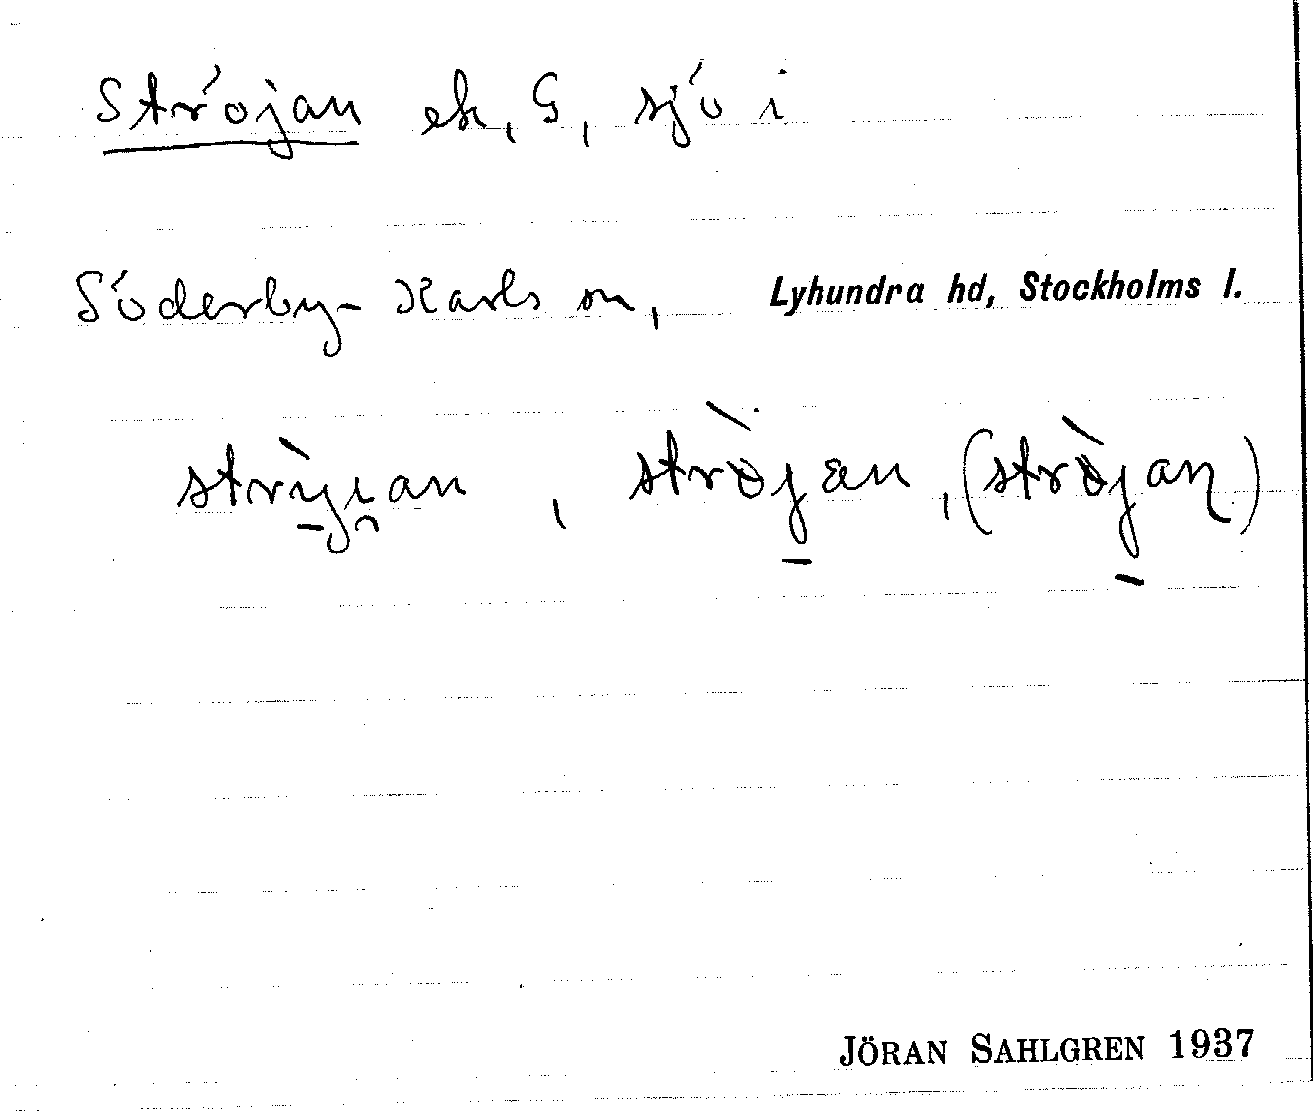 Ströjan ek, G, sjö i
Söderby-Karls sn, Lyhundra hd, Stockholms l.
strỳi̯an, strø̀jan, (strø̀jan)
JÖRAN SAHLGREN 1937